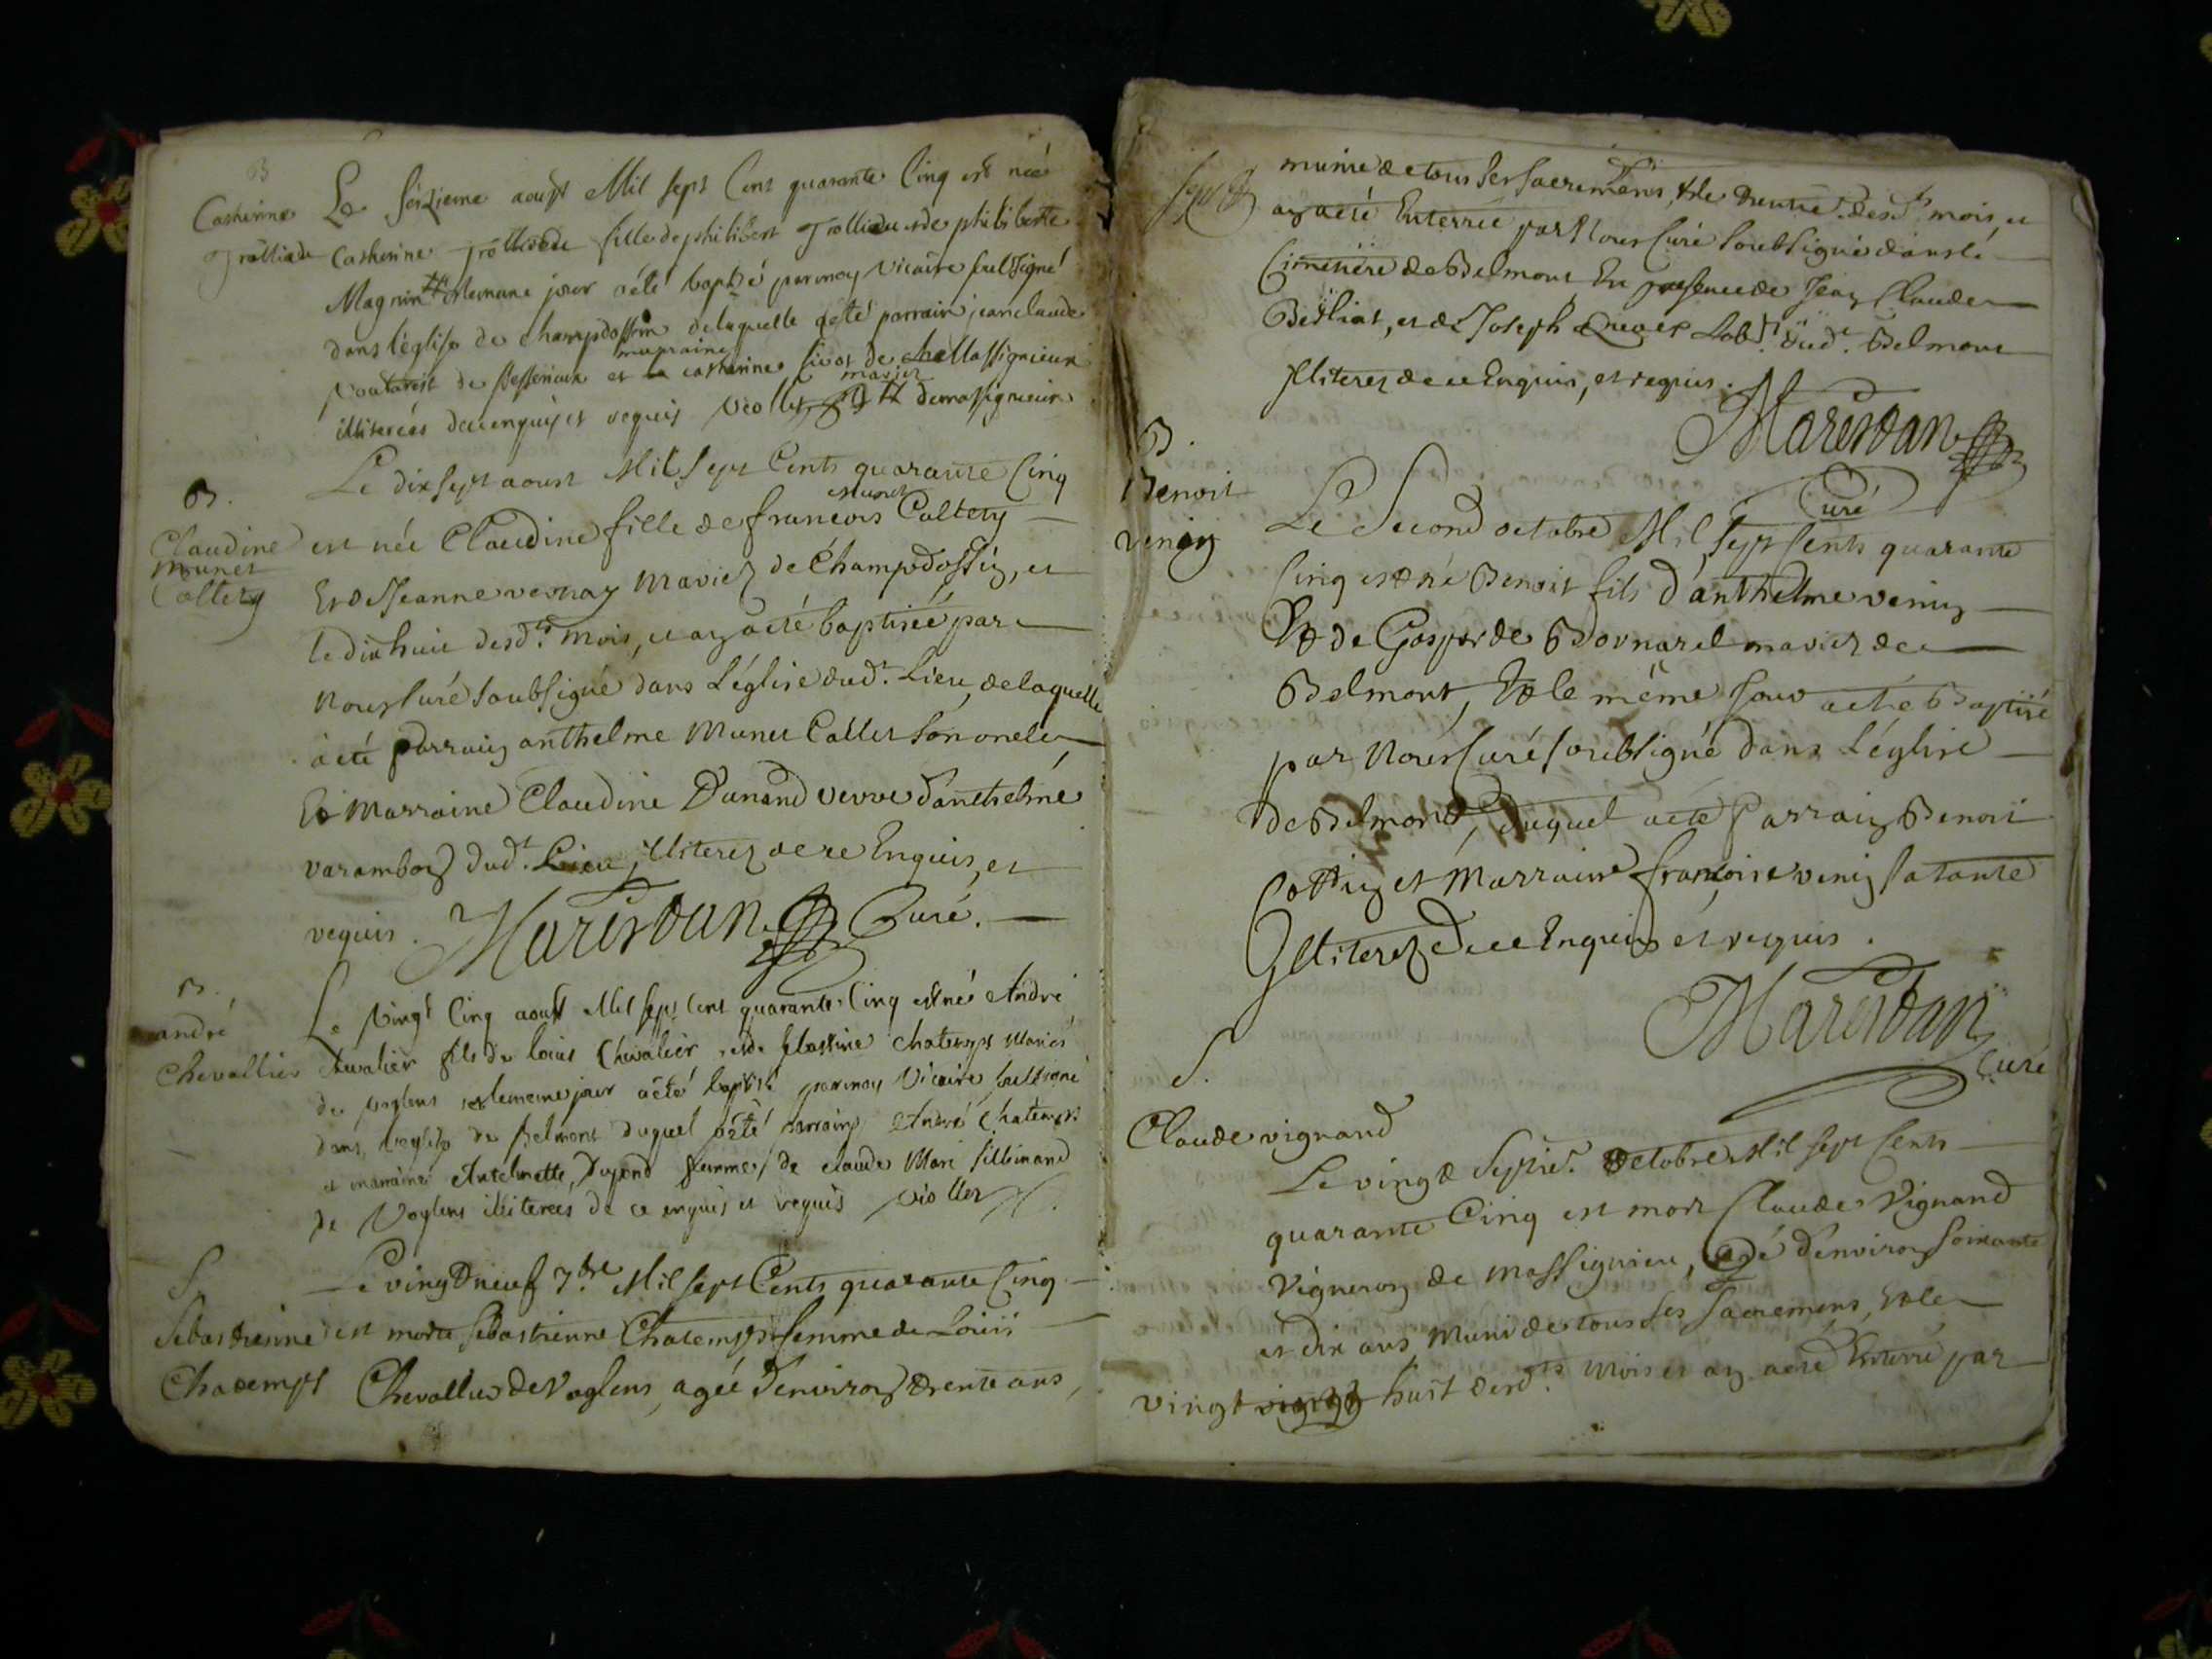 B
Catherine
Trolliede
Le seizieme aoust Mil sept Cent quarante Cinq est néé
Catherine Trolliede fille de philibert Trolliede et de philiberte
Magnin et le meme jour a été baptisé par moy Vicaire soussigné
dans l'église de champdossin de laquelle a été parrain jean claude
marraine
de et catherine de Massignieux
mariez
illiterés de ce enquis et requis Viollet de massignieux
B.
Claudine
Munet
Collety
Le dix sept aoust Mil Sept Cents quarante Cinq
Munet
est née Claudine fille de francois Collety
Et de Jeanne vernay Mariez de Champdossin, et
le dix huit desd.ts mois, et an a eté baptiséé par
Nous Curé soubsigné dans L'église dud.t Lieu, de laquelle
à eté parrain anthelme Munet Collet son oncle
Et Marraine Claudine Dunand veuve d'anthelme
varambon dud.t Lieu, Illiterez de ce Enquis, et
requis. Marestan Curé.
B.
andré
Chevallier
Le Vingt Cinq aoust Mil sept Cent quarante Cinq est né André
Chevalier fils de louis Chevalier et de chatemps Mariés
de voglens et le meme jour a été baptisé par moy Vicaire soussigné
dans l'eglise de Belmont duquel a été parrain André Chatemps
et marraine Antelmette Dupond femme de claude Mari
de Voglens illiterés de ce enquis et requis Viollet
S
Sebastienne
Chatemps
Le vingt neuf 7.bre Mil sept Cents quarante Cinq
est morte Sebastienne Chatemps femme de Loüis
Chevallier de Voglens, agéé d'environ trente ans,
munie de tous ses sacremens, et le trente desd.ts mois, et
an a eté Enterrée par Nous Curé soubsigné dans le
Cimetiere de Belmont En presence de Jean Claude
Berliat, et de Joseph dud.t Belmont
Illiterez de ce Enquis, et requis.
Marestan
Curé
B.
Benoit
venin
Le Second octobre Mil, sept Cents quarante
Cinq est né Benoit fils d'anthelme venin
Et de Gasparde Bornarel mariez de
Belmont, Et le même Jour a eté Baptisé
par Nous Curé soubsigné dans L'église
de Belmont, duquel a eté Parrain Benoit
Cottin et Marraine francoise venin sa tante
Illiterez de ce Enquis et requis.
Marestan
Curé
S.
Claude vignand
Le vingt Septie.e octobre Mil sept Cents
quarante Cinq est mort Claude Vignand
Vigneron de Massignieu, agé d'environ soixante
et dix ans, Muni de tous ses sacremens, Et le
vingt huit desd.ts Mois et an a eté Enterré par